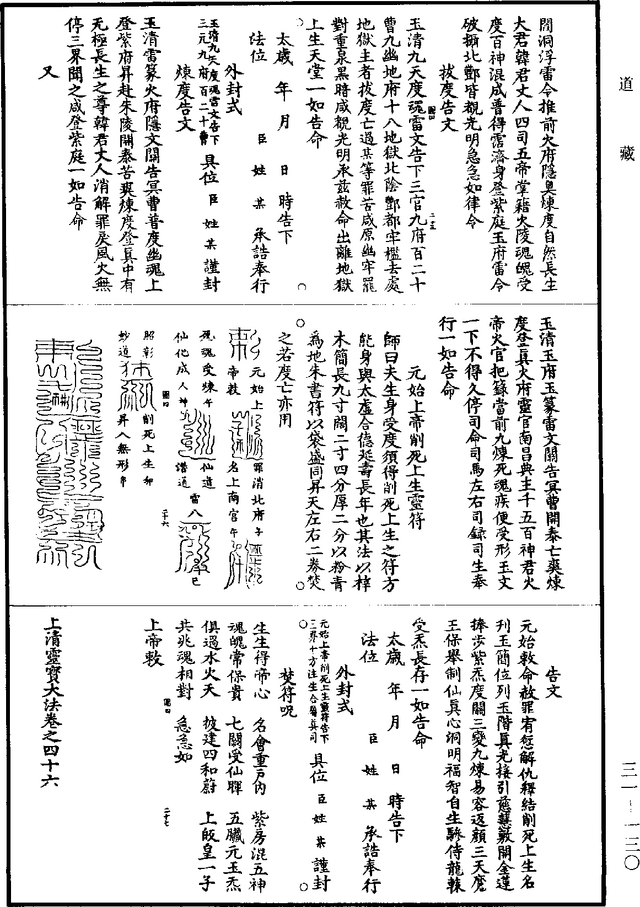 道藏
閞洞浮雷令推前火府隱奥煉度自然長生
大君韓君丈人四司五帝掌籍火陵魂魄受
度百神混成普得霑濟身登紫庭玉府雷令
破摧北酆皆覩光明急急如律令
拔度告文
玉清九天度魂雷文告下三官九府百二十
曹九幽地府十八地獄北陰酆都牢檻去處
地獄主者拔度亡過某等罪苦咸原幽牢罷
對重泉黑暗咸覩光明承兹赦命出離地獄
上生天堂一如告命
太歲 年 月 日 時告下
法位 臣 姓 某 承誥奉行
外封式
玉清九天度魂雷文告下
三元九府百二十曹 具位 臣 姓 某 謹封
煉度告文
玉清雷篆火府隱文關告冥曹普度幽魂上
登紫府昇赴朱陵開泰苦爽煉度登真中有
无極長生之尊韓君丈人消解罪戾風火無
停三界聞之咸登紫庭一如告命
又
玉清玉府玉篆雷文關告冥曹開泰亡爽煉
度登真火府靈官南昌典主千五百神君火
帝火官把籙當前九煉死魂疾便受形玉文
一下不得久停司命司馬左右司録司生奉
行一如告命
元始上帝削死上生靈符
師曰夫生身受度須得削死上生之符方
能身與太虛合德延壽長年也其法以梓
木簡長九寸闊二寸四分厚二分以粉青
爲地朱書符以袋盛同昇天左右二券焚
之若度亡亦用
元始上帝敕
罪消北府子
名上南宫午
死魂受煉午
仙化成人神
仙道
潛通
雷八
巳
昭彰
妙道
削死上生和
昇入無形帝
告文
元始敕命赦罪宥愆解仇釋結削死上生名
列玉簡位列玉階真光接引慈轝簸開金蓮
捧步紫炁度關三變九煉易容返顔三天魔
王保舉制仙真心洞明福智自生驂侍龍輧
受炁長存一如告命
太歲 年 月 日 時告下
法位 臣 姓 某 承誥奉行
外封式
元始上帝削死上生靈符告下
三界十方注生合屬真司 具位 臣 姓 某 謹封
焚符呪
生生得帝心 名會重戸内 紫房混五神
魂魄常保貴 七關受仙暉 五臟元玉炁
俱過水火天 披建四和蔚 上皈皇一子
共兆魂相對 急急如
上帝敕
上清靈寶大法卷之四十六
三一—一三〇